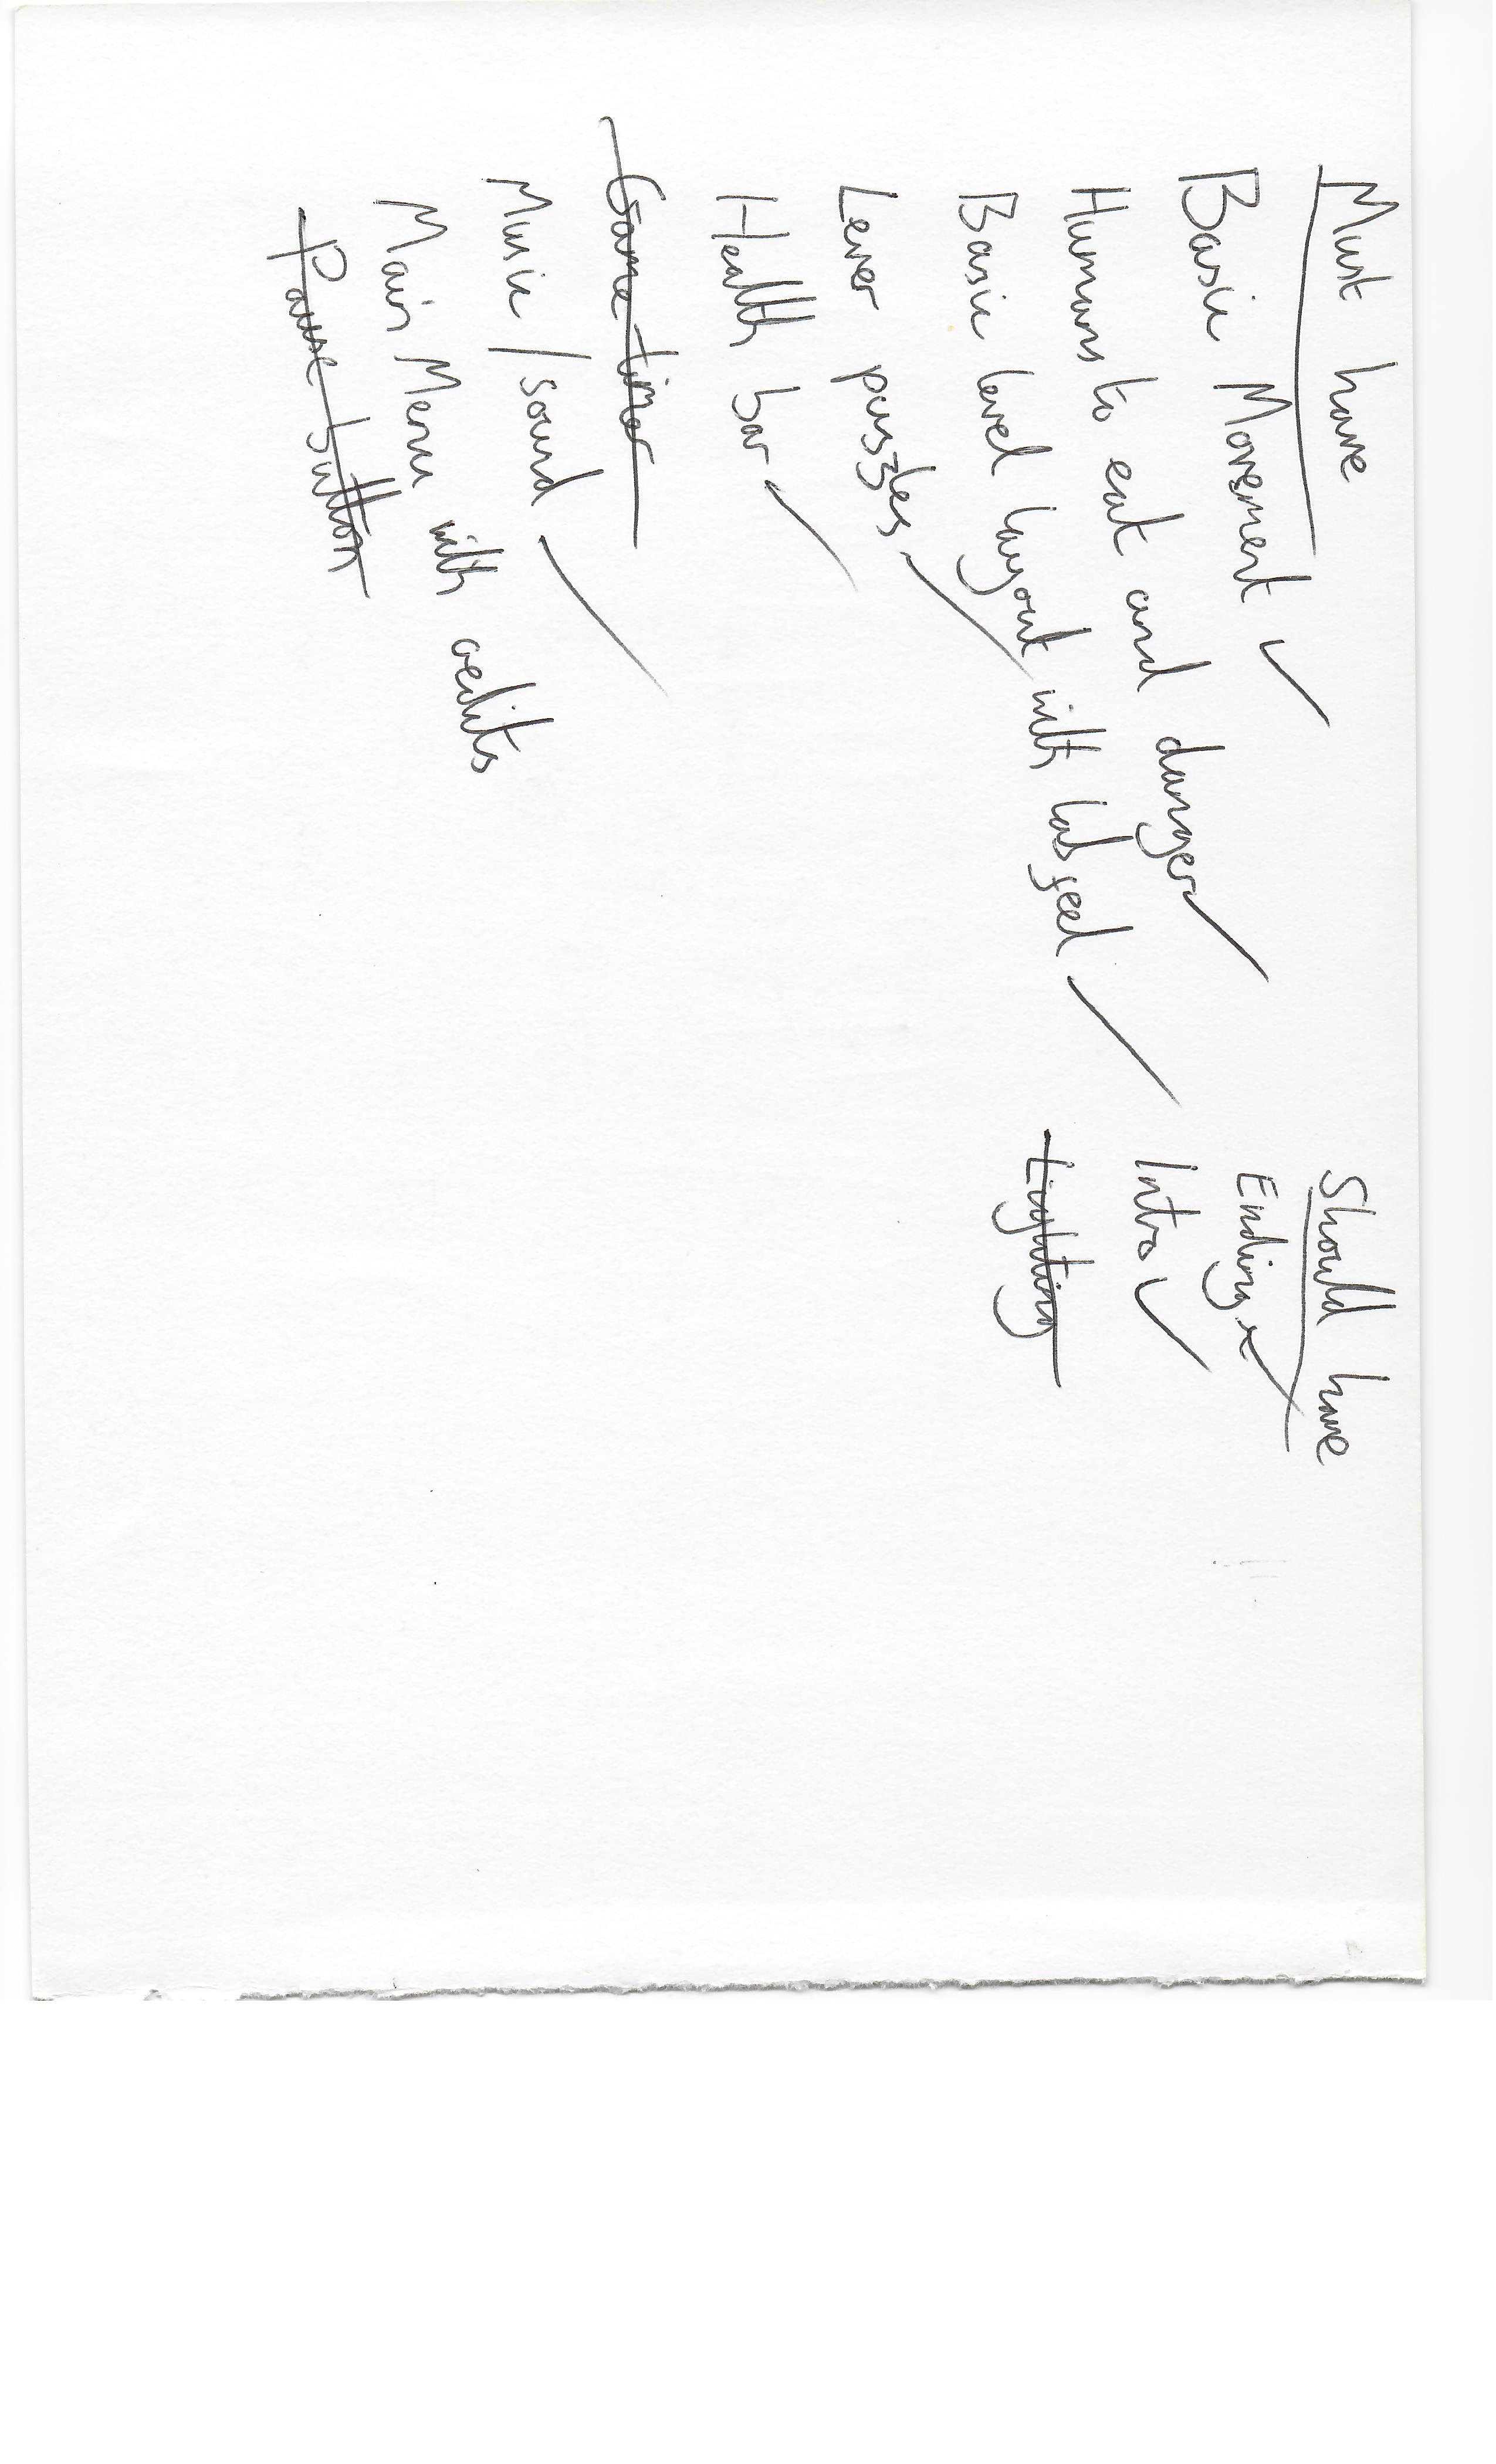 Must have
Basic Movement ✓
Humans to eat and danger ✓
Basic level layout with lab feel ✓
Lever puzzles ✓
Health bar ✓
Game timer
Music / sound ✓
Main Menu with credits
Pause button
Should have
Ending ✓
Intro ✓
Lighting